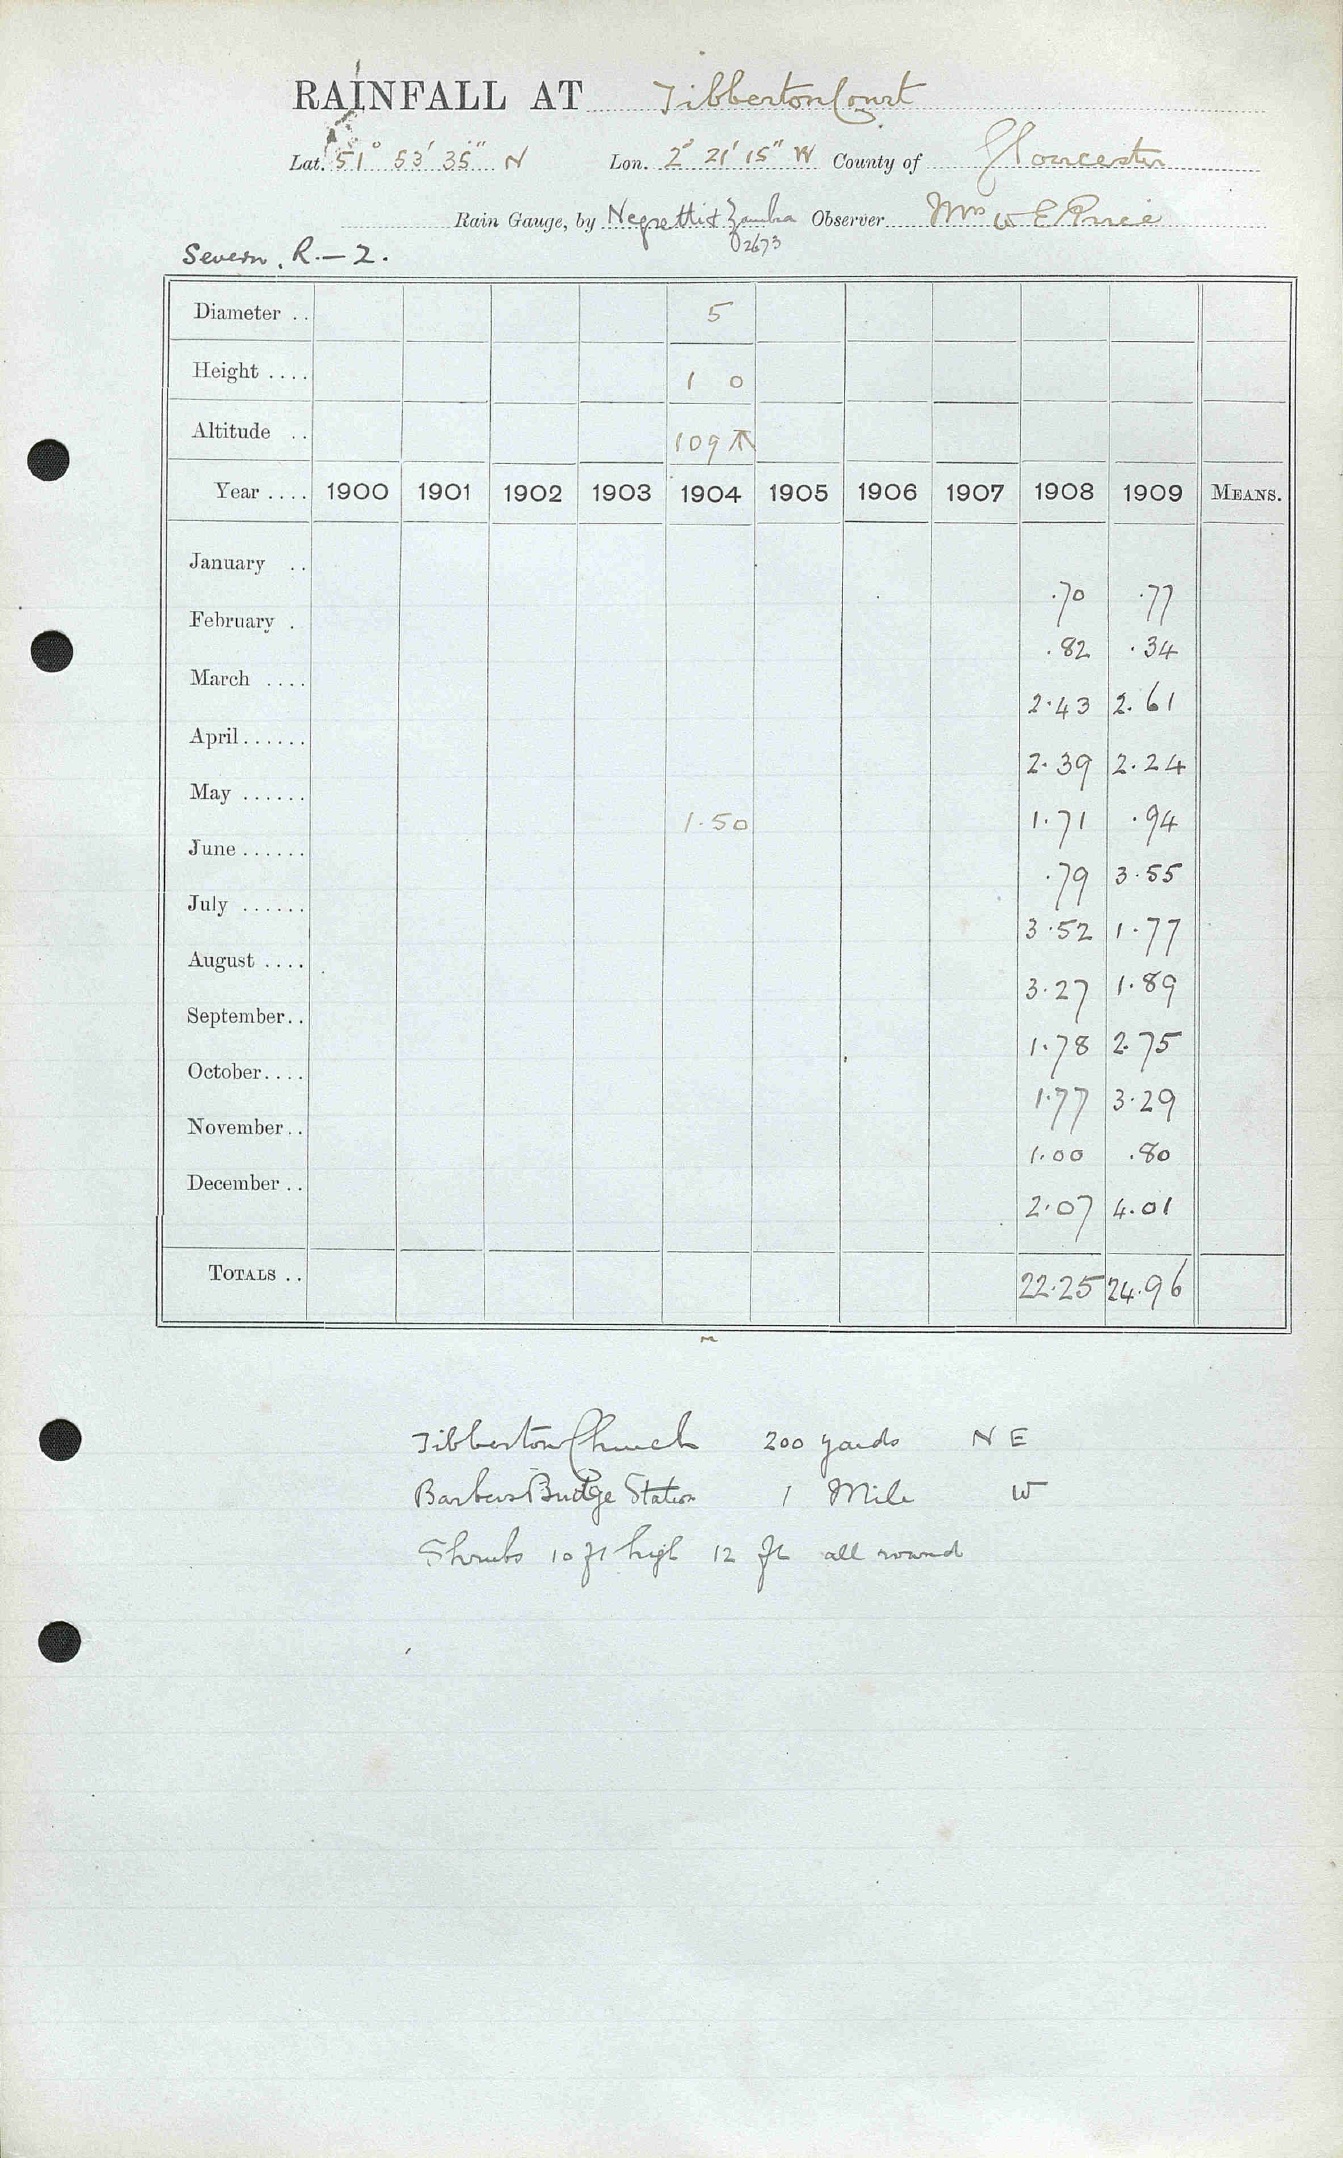 RAINFALL AT Tibberton Court
Lat. 51° 53' 35" N Lon. 2° 21' 15" W County of Gloucester
Rain Gauge, by Negretti & Zambra Observer Mrs W E Price
2673
Severn. R. — 2.
Diameter .. 5
Height .... 1 0
Altitude .. 109
Year .... 1900 1901 1902 1903 1904 1905 1906 1907 1908 1909 MEANS.
January .. .70 .77
February . .82 .34
March .... 2.43 2.61
April ...... 2.39 2.24
May ...... 1.50 1.71 .94
June ...... .79 3.55
July ...... 3.52 1.77
August .... 3.27 1.89
September .. 1.78 2.75
October .... 1.77 3.29
November .. 1.00 .80
December .. 2.07 4.01
TOTALS .. 22.25 24.96
Tibberton Church 200 yards N E
Barbers Bridge Station 1 Mile W
Shrubs 10 ft high 12 ft all round